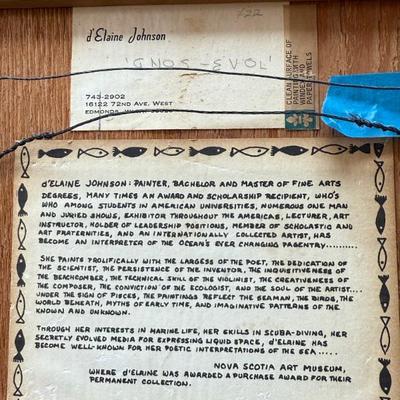 422
d'Elaine Johnson
"LOVE-SONG"
743-2902
16122 72ND AVE. WEST
EDMONDS,
CLEAN SURFACE OF
PAINTING WITH
WINDEX AND
PAPER TOWELS
d'ELAINE JOHNSON: PAINTER, BACHELOR AND MASTER OF FINE ARTS
DEGREES, MANY TIMES AN AWARD AND SCHOLARSHIP RECIPIENT, WHO'S
WHO AMONG STUDENTS IN AMERICAN UNIVERSITIES, NUMEROUS ONE MAN
AND JURIED SHOWS, EXHIBITOR THROUGHOUT THE AMERICAS, LECTURER, ART
INSTRUCTOR, HOLDER OF LEADERSHIP POSITIONS, MEMBER OF SCHOLASTIC AND
ART FRATERNITIES, AND AN INTERNATIONALLY COLLECTED ARTIST, HAS
BECOME AN INTERPRETER OF THE OCEAN'S EVER CHANGING PAGENTRY..........
SHE PAINTS PROLIFICALLY WITH THE LARGESS OF THE POET, THE DEDICATION OF
THE SCIENTIST, THE PERSISTENCE OF THE INVENTOR, THE INQUISITIVENESS OF
THE BEACHCOMBER, THE TECHNICAL SKILL OF THE VIOLINIST, THE CREATIVENESS OF
THE COMPOSER, THE CONVICTION OF THE ECOLOGIST, AND THE SOUL OF THE ARTIST....
UNDER THE SIGN OF PISCES, THE PAINTINGS REFLECT THE SEAMAN, THE BIRDS, THE
WORLD BENEATH, MYTHS OF EARLY TIME, AND IMAGINATIVE PATTERNS OF THE
KNOWN AND UNKNOWN.
THROUGH HER INTERESTS IN MARINE LIFE, HER SKILLS IN SCUBA-DIVING, HER
SECRETLY EVOLVED MEDIA FOR EXPRESSING LIQUID SPACE, d'ELAINE HAS
BECOME WELL-KNOWN FOR HER POETIC INTERPRETATIONS OF THE SEA.....
NOVA SCOTIA ART MUSEUM,
WHERE d'ELAINE WAS AWARDED A PURCHASE AWARD FOR THEIR
PERMANENT COLLECTION.